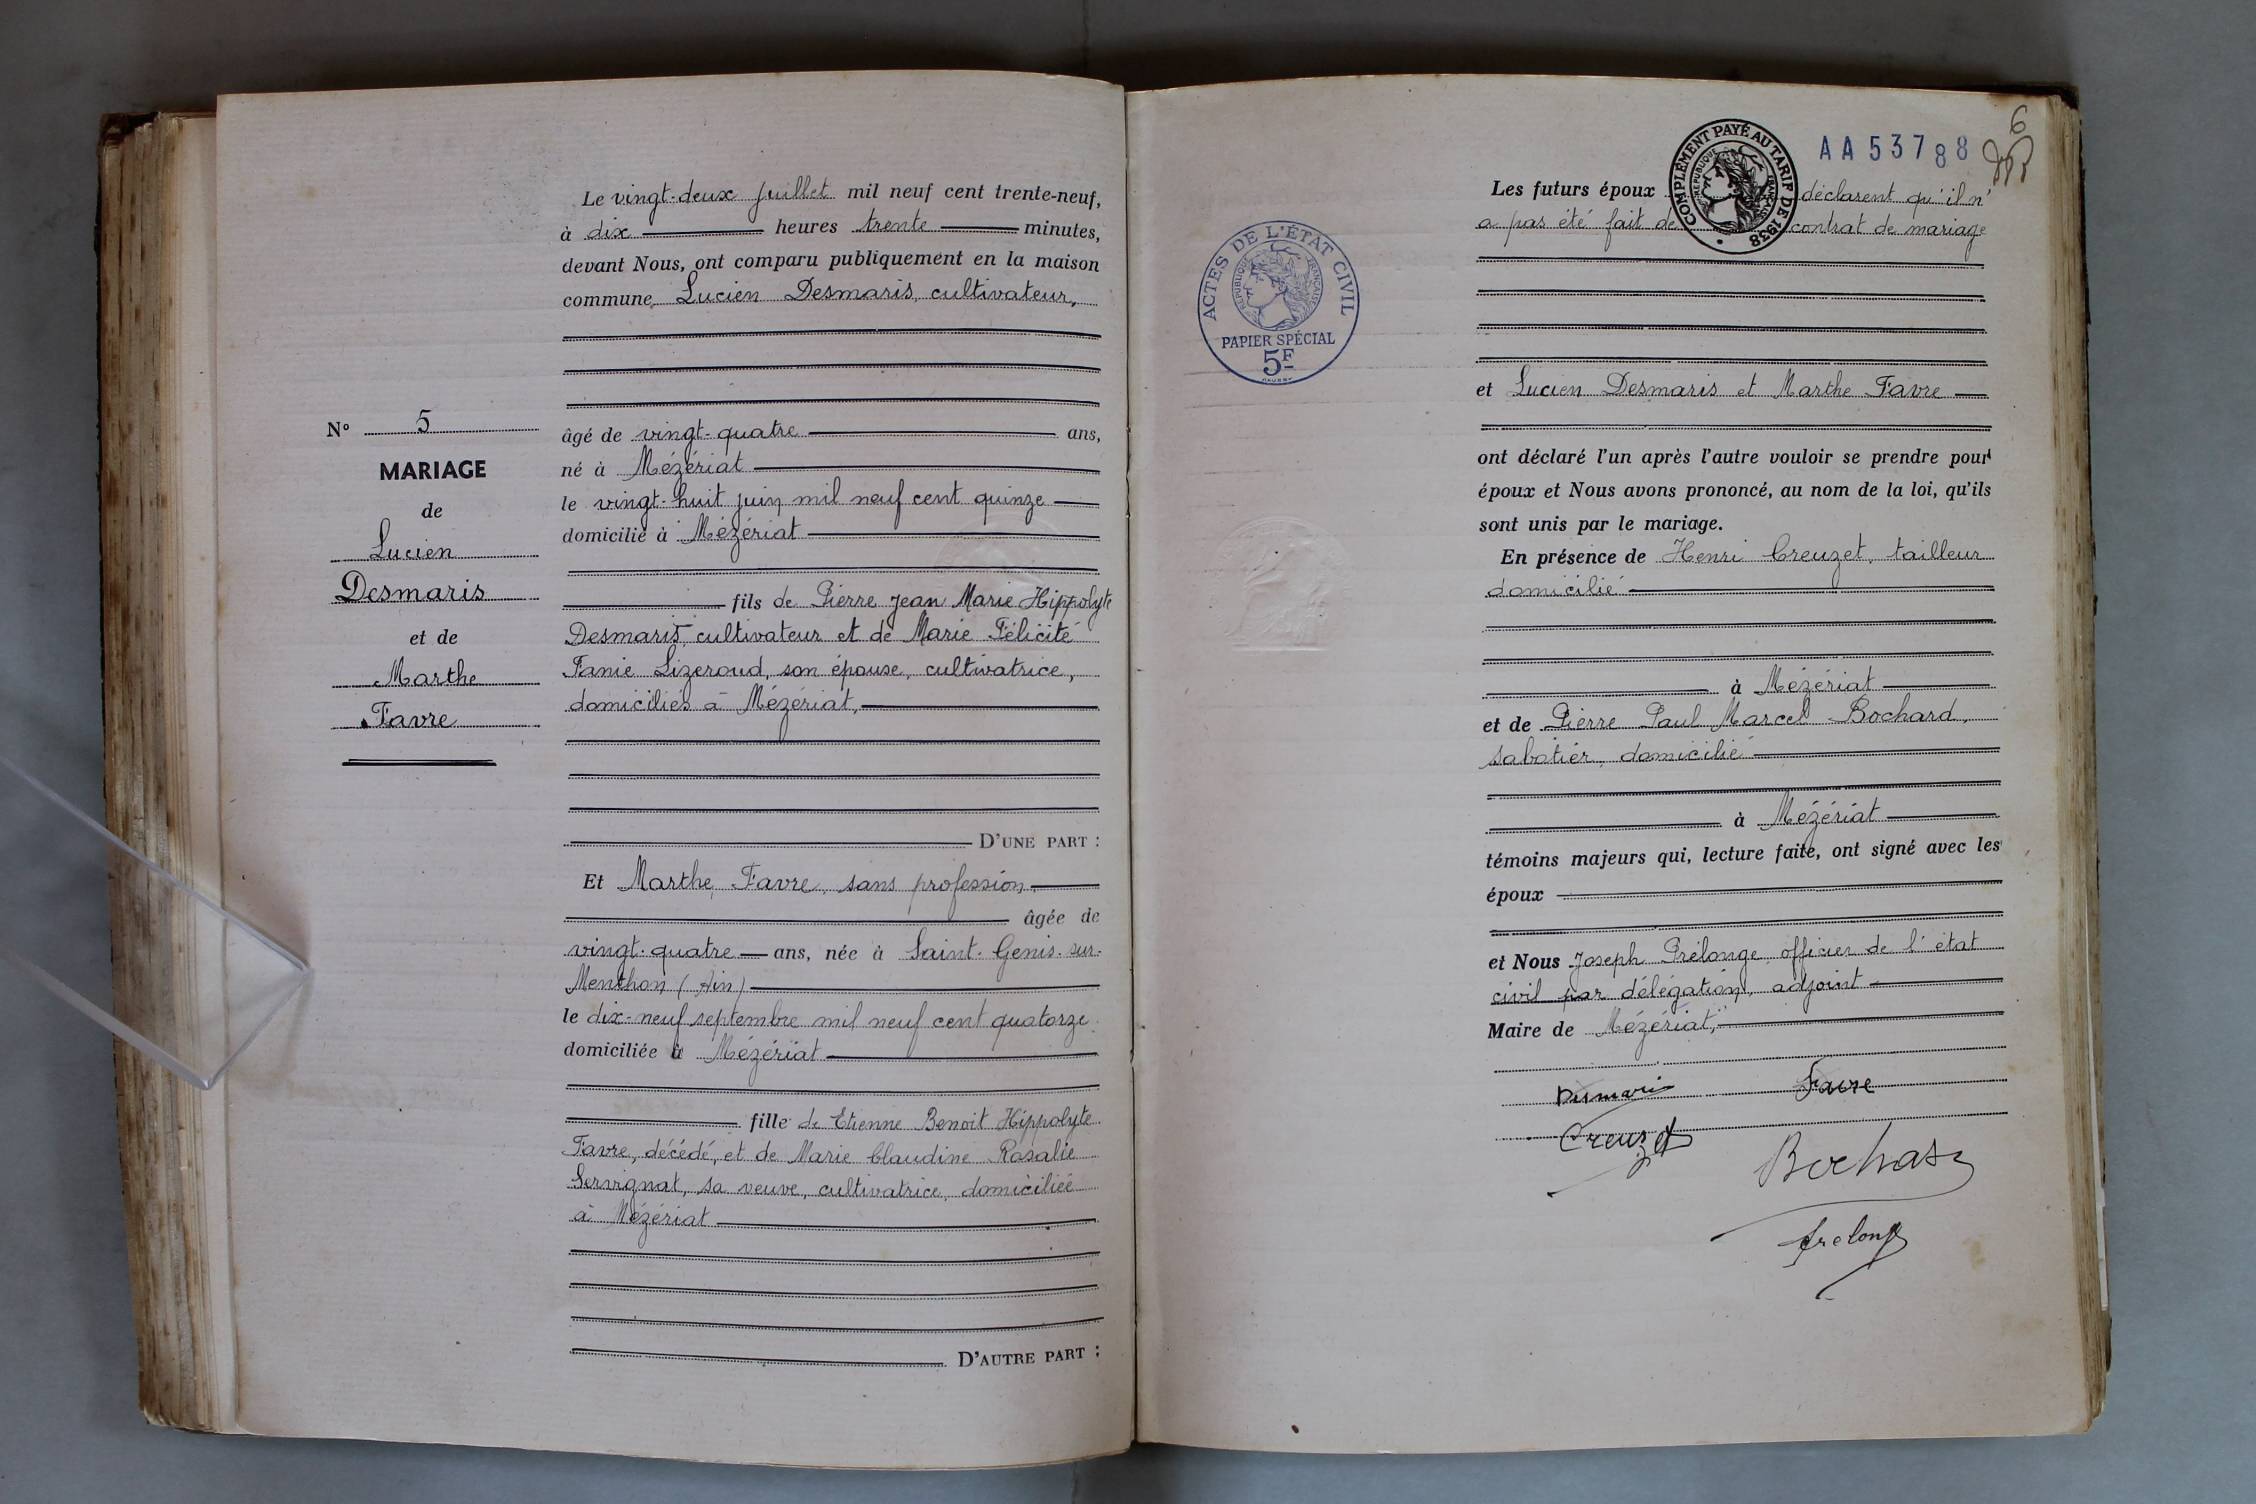 Le vingt-deux juillet mil neuf cent trente-neuf,
à dix heures trente minutes,
devant Nous, ont comparu publiquement en la maison
commune, Lucien Desmaris, cultivateur,
âgé de vingt-quatre ans,
né à Mézériat
le vingt-huit juin mil neuf cent quinze
domicilié à Mézériat
fils de Pierre Jean Marie Hippolyte
Desmaris, cultivateur et de Marie Félicité
Fanie Lizeroud, son épouse, cultivatrice,
domiciliés à Mézériat,
D'UNE PART :
Et Marthe Favre, sans profession
âgée de
vingt-quatre ans, née à Saint-Genis-sur-
Menthon (Ain)
le dix-neuf septembre mil neuf cent quatorze
domiciliée à Mézériat
fille de Etienne Benoit Hippolyte
Favre, décédé, et de Marie Claudine Rosalie
Servignat, sa veuve, cultivatrice, domiciliée
à Mézériat
D'AUTRE PART :
N° 5
MARIAGE
de
Lucien
Desmaris
et de
Marthe
Favre
6
AA53788
COMPLÉMENT PAYÉ AU TARIF DE 1938
RÉPUBLIQUE FRANÇAISE
ACTES DE L'ÉTAT CIVIL
RÉPUBLIQUE FRANÇAISE
PAPIER SPÉCIAL
5F
Les futurs époux déclarent qu'il n'
a pas été fait de contrat de mariage
et Lucien Desmaris et Marthe Favre
ont déclaré l'un après l'autre vouloir se prendre pour
époux et Nous avons prononcé, au nom de la loi, qu'ils
sont unis par le mariage.
En présence de Henri Creuzet, tailleur
domicilié
à Mézériat
et de Pierre Paul Marcel Bochard,
sabotier, domicilié
à Mézériat
témoins majeurs qui, lecture faite, ont signé avec les
époux
et Nous Joseph Prélonge officier de l'état
civil par délégation, adjoint
Maire de Mézériat,
Desmaris Favre
Creuzet
Bochard
Prelonge